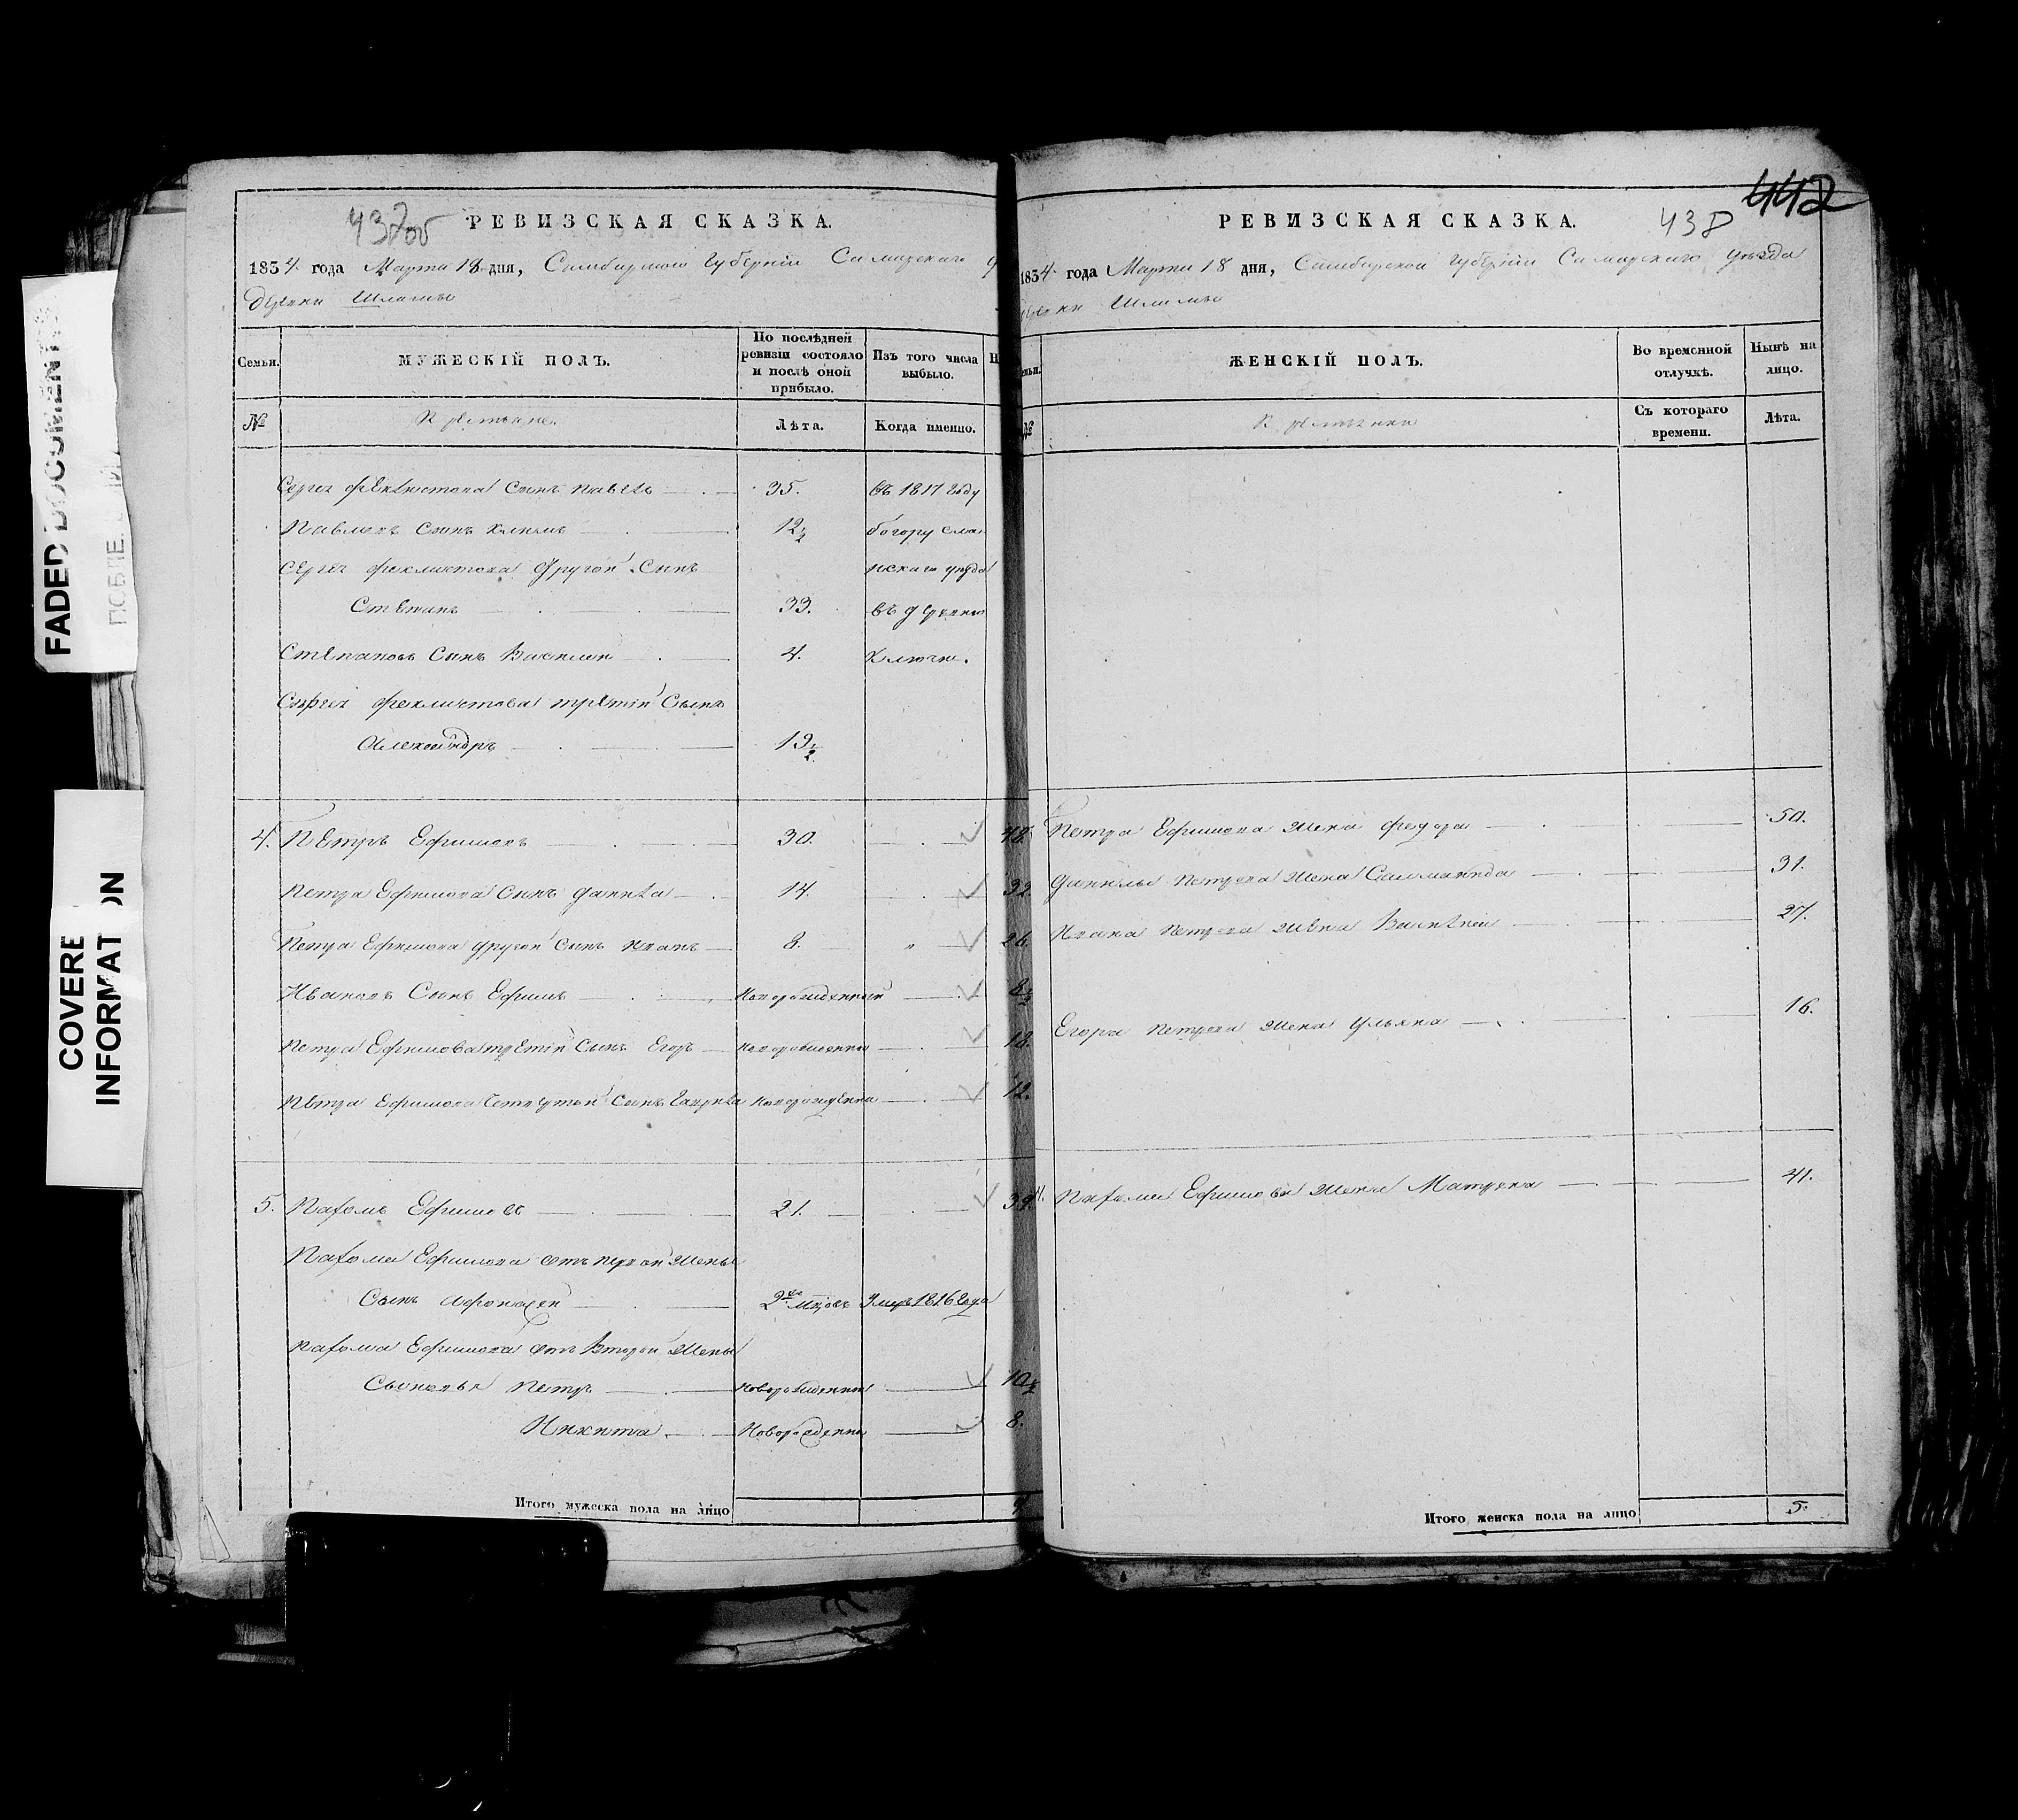 FADED DOCUMENTS
COVERE
INFORMAT ON
437об
РЕВИЗСКАЯ СКАЗКА.
1834 года Марта 18 дня, Симбирской Губерніи Самарскаго
Шламы
Семьи.
МУЖЕСКІЙ ПОЛЪ.
По послѣдней ревизіи состояло и послѣ оной прибыло.
Изъ того числа выбыло.
№
Крестьяне.
Лѣта.
Когда именно.
Сергея Феклистова Сынъ Павелъ 35. въ 1817 году
Павловъ Сынъ Климъ 12½ богорусла
Сергея Феклистова другой Сынъ нскаго уезда
Степанъ 33. въ деревню
Степановъ Сынъ Василей 4. Ключи.
Сергея Феклистова третій Сынъ
Александръ 19½
4. Петръ Ефимовъ 30. 48.
Петра Ефимова Сынъ Данила 14. 32
Петра Ефимова другой Сынъ Иванъ 8. " 26.
Ивановъ Сынъ Ефимъ Новорожденный
Петра Ефимова третій Сынъ Егоръ Новорожденный 18.
Петра Ефимова Четвертой Сынъ Гаврила Новорожденный 12.
5. Пахомъ Ефимовъ 21. 39.
Пахома Ефимова отъ первой Жены
Сынъ Афонасей 2хъ Мцовъ Умеръ 1816 года
Пахома Ефимова отъ Второй Жены
Сыновья Петръ Новорожденной 10½
Никита Новорожденный 8.
Итого мужеска пола на лицо
442
438
РЕВИЗСКАЯ СКАЗКА.
1834 года Марта 18 дня, Симбирской Губерніи Самарскаго уезда
Шламы
ЖЕНСКІЙ ПОЛЪ.
Во временной отлучкѣ.
Нынѣ на лицо.
№
Крестьянки
Съ котораго времени.
Лѣта.
Петра Ефимова Жена Федора 50.
Данилы Петрова Жена Саломанида 31.
Ивана Петрова Жена Василиса 27.
Егора Петрова Жена Ульяна 16.
Пахома Ефимова Жена Матрена 41.
Итого женска пола на лицо 5.